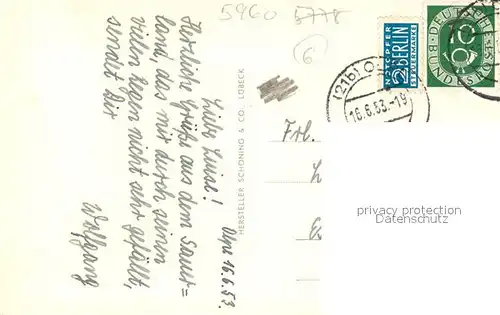 5960 5778
6
NOTOPFER
2 BERLIN
STEUERMARKE
DEUTSCHE BUNDESPOST
10
(21b) O
16.6.53.-19
Olpe 16.6.53.
Liebe Luise!
Herzliche Grüße aus dem Sauer=
land, das mir durch seinen
vielen Regen nicht sehr gefällt,
sendet Dir
Wolfgang
HERSTELLER SCHÖNING & CO., LÜBECK
Frl.
privacy protection
www.oldthing.de